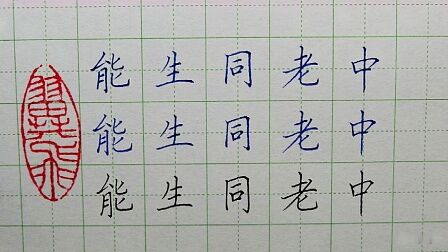 能生同老中
能生同老中
能生同老中